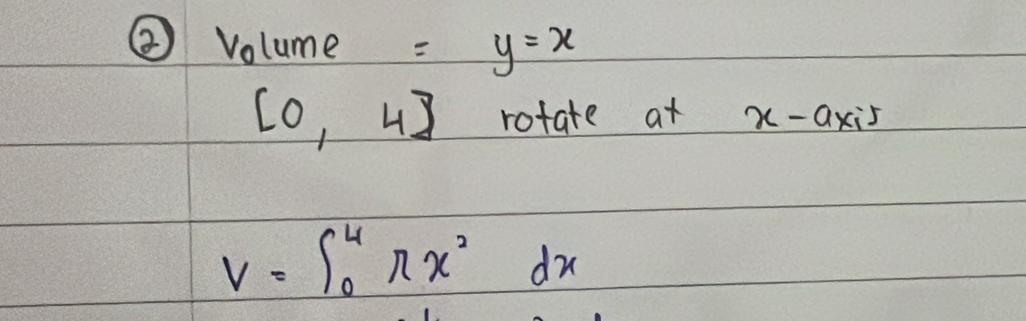 ② Volume = y = x
[0, 4] rotate at x-axis
V = ∫₀⁴ πx² dx